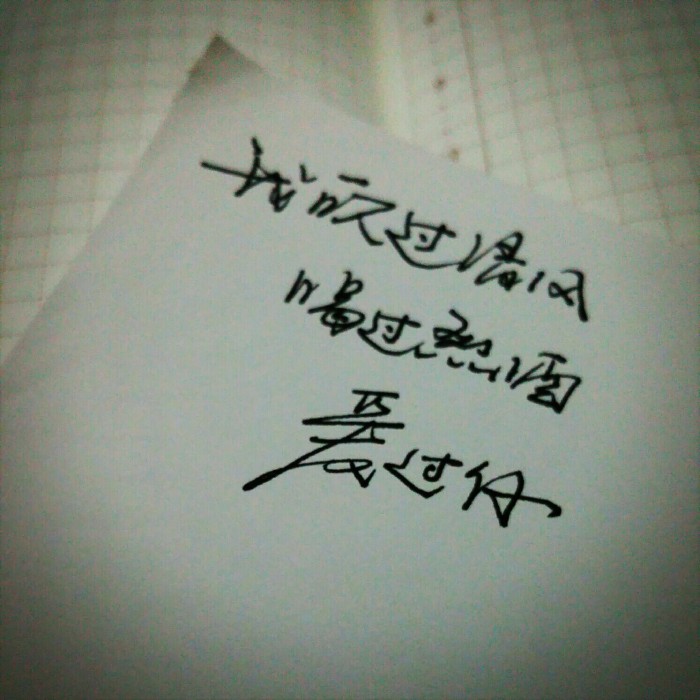 我吹过清风
喝过烈酒
爱过你